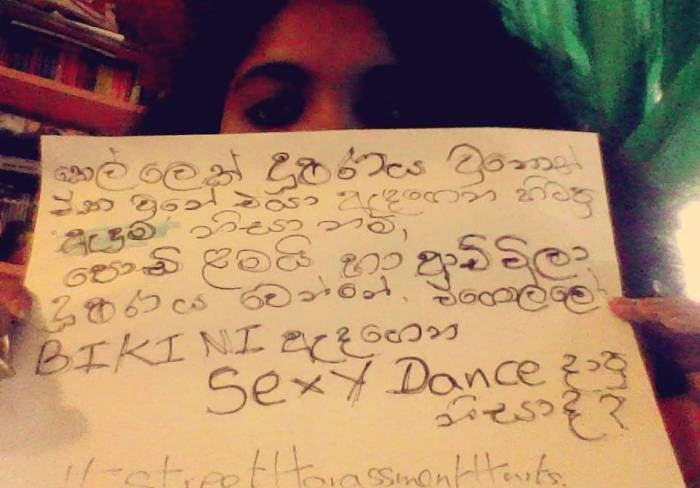 කෙල්ලෙක් දූෂණය වුනොත්
ඒක වුනේ එයා ඇඳගෙන හිටපු
ඇඳුම නිසා නම්,
පොඩි ළමයි හා ආච්චිලා
දූෂණය වෙන්නේ, එගොල්ලෝ
BIKINI ඇඳගෙන
Sexy Dance දාපු
නිසාද?
#StreetHarassmentHurts.